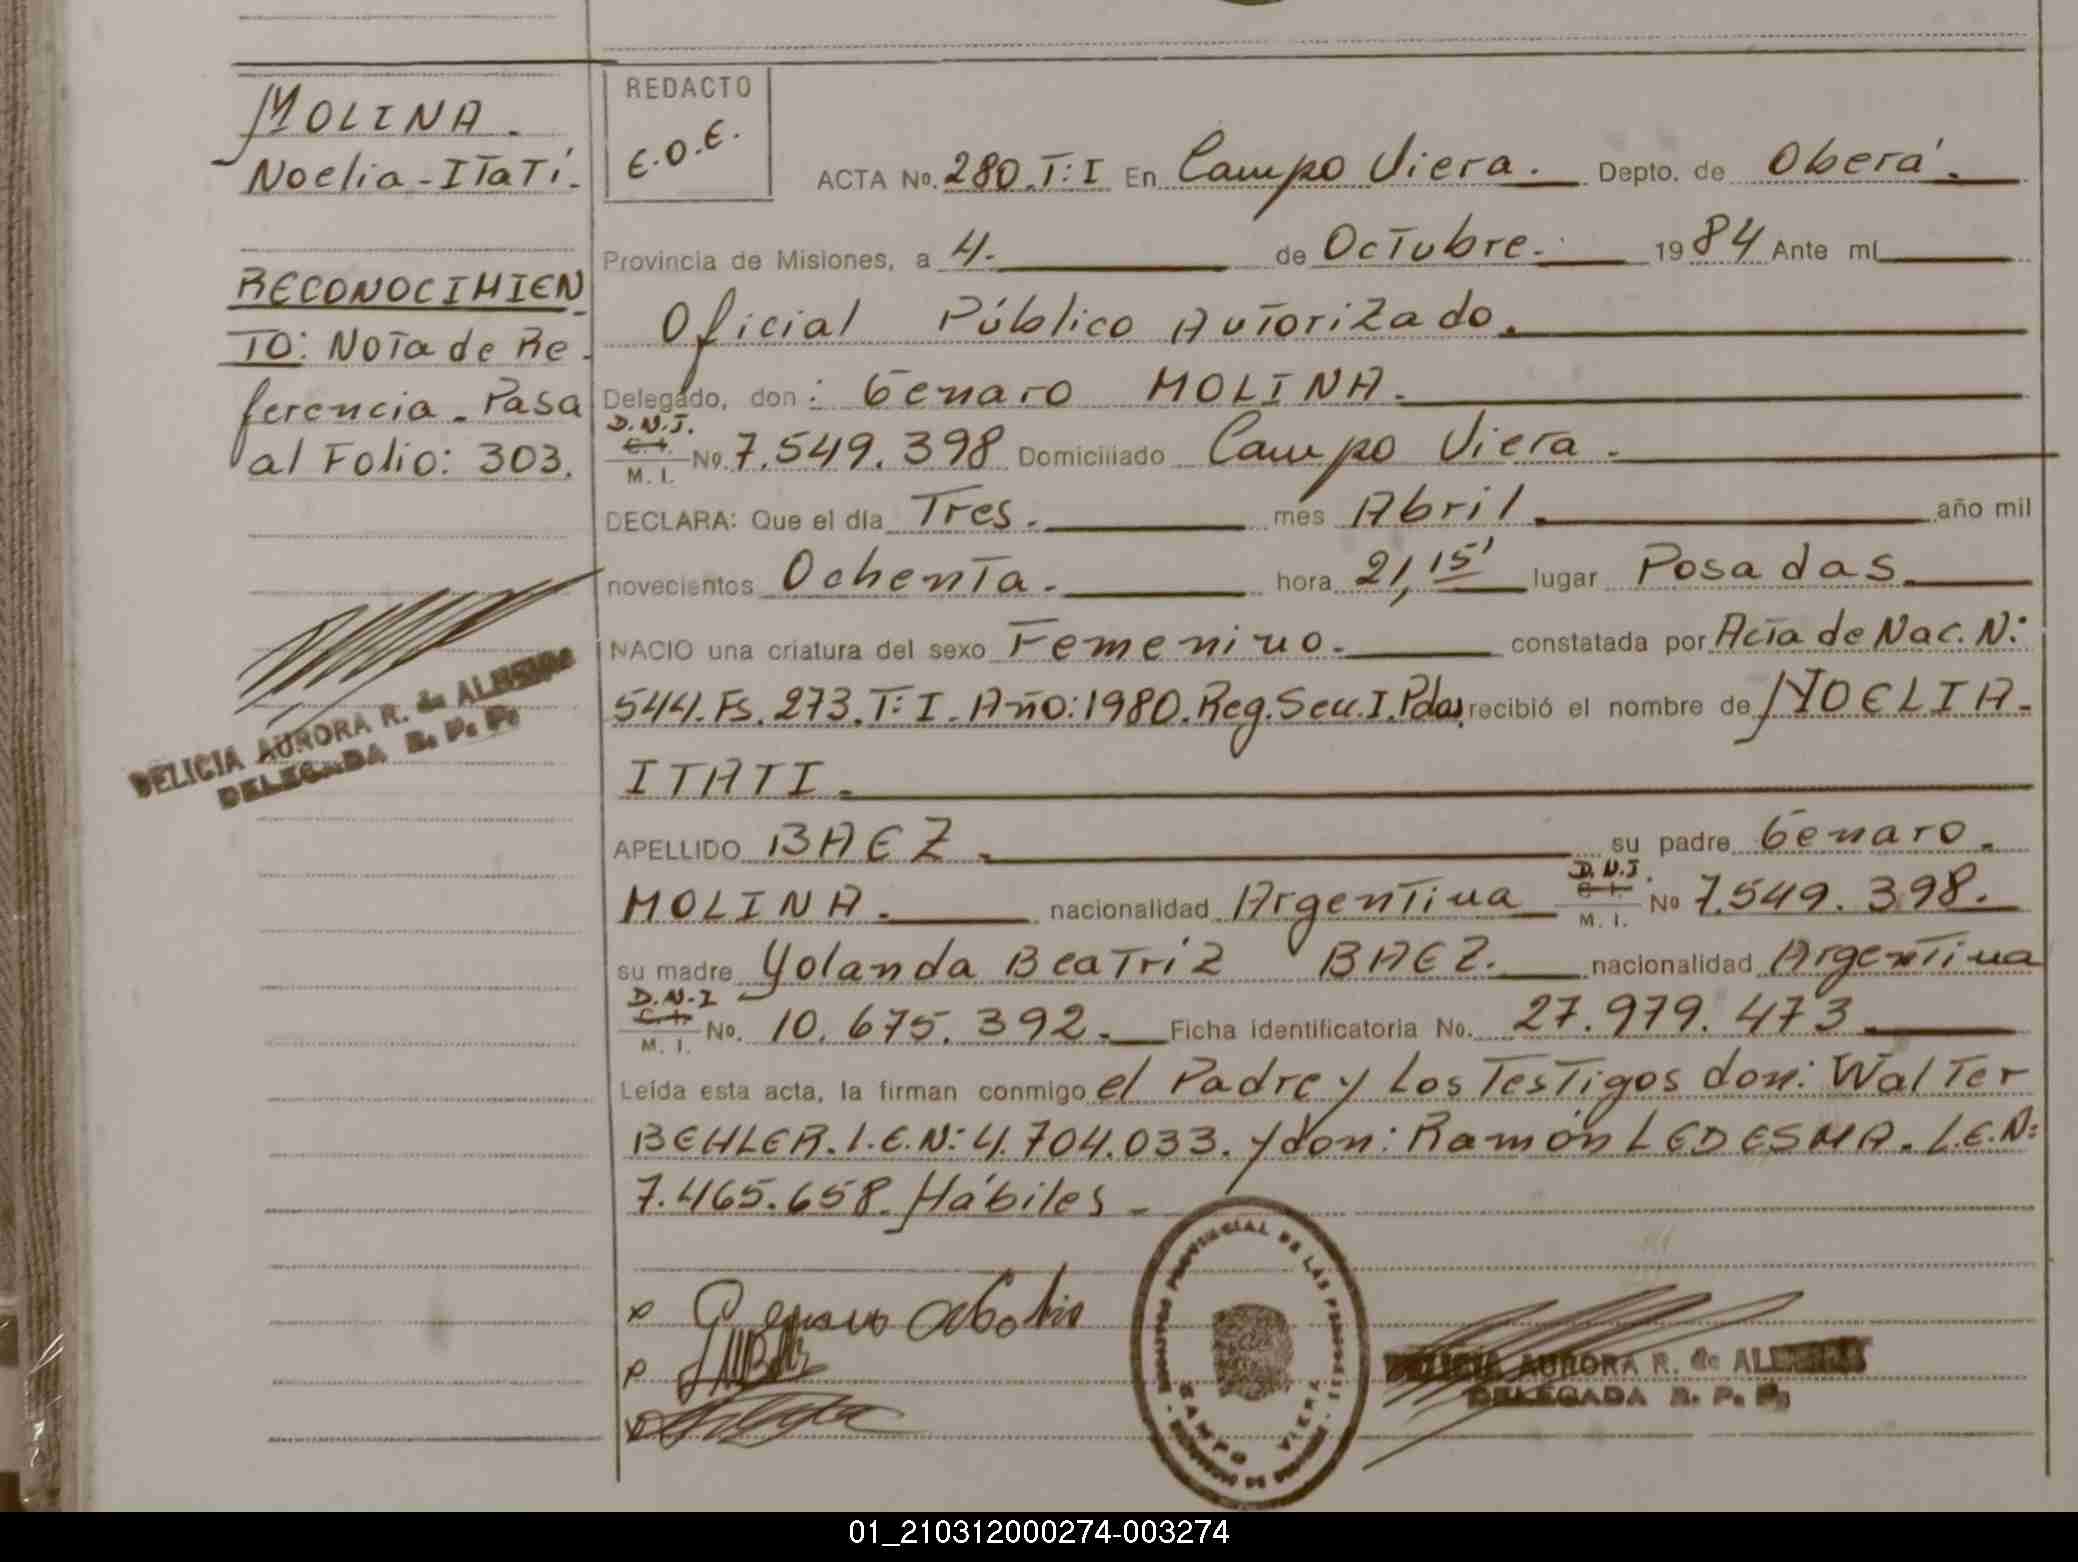 MOLINA.
Noelia-Itatí.
RECONOCIMIEN
TO: Nota de Re-
ferencia. Pasa
al Folio: 303.
DELICIA AURORA R. de
DELEGADA R. P. P.
REDACTO
E.O.E.
ACTA No. 280.T:I En Campo Viera. Depto. de Oberá.
Provincia de Misiones, a 4. de Octubre. 1984 Ante mí
Oficial Público Autorizado.
Delegado, don: Genaro MOLINA.
D.N.I.
C. I.
M. I. No. 7.549.398 Domiciliado Campo Viera.
DECLARA: Que el día Tres. mes Abril. año mil
novecientos Ochenta. hora 21,15' lugar Posadas.
NACIO una criatura del sexo Femenino. constatada por Acta de Nac. N:
544. Fs. 273. T: I. Año: 1980. Reg. Secc. I. Pdas recibió el nombre de NOELIA.
ITATI.
APELLIDO BAEZ. su padre Genaro.
MOLINA. nacionalidad Argentina D.N.I. C. I. M. I. No 7.549.398.
su madre Yolanda Beatríz BAEZ. nacionalidad Argentina
D.N.I C. I. M. I. No. 10.675.392. Ficha identificatoria No. 27.979.473
Leída esta acta, la firman conmigo el Padre y Los Testigos don: Walter
BEHLER. L.E.N: 4.704.033. y don: Ramón LEDESMA. L.E.N:
7.465.658. Hábiles.
x Genaro Molina
x
x
PROVINCIAL DE LAS PERSONAS
CAMPO VIERA
DELICIA AURORA R. de
DELEGADA R. P. P.
01_210312000274-003274